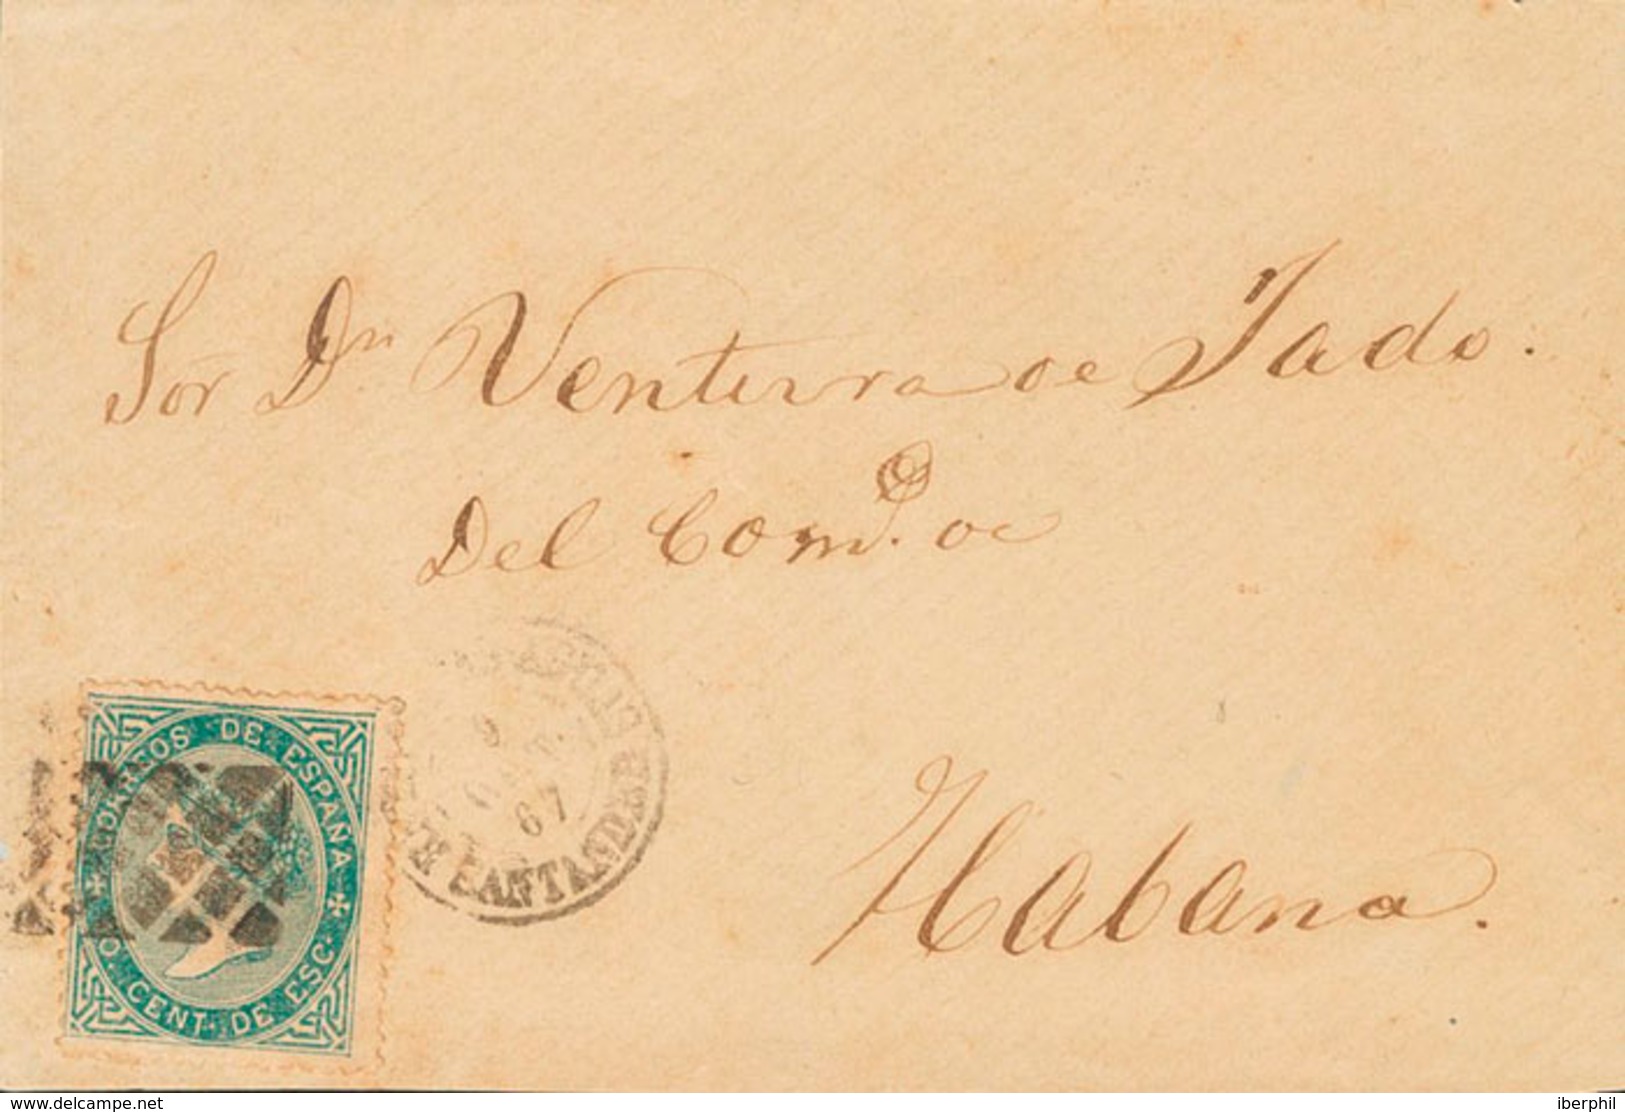 Sor Dn Ventura de Jado.
Del Comº. de
Habana.
CORREOS DE ESPAÑA
10 CENT. DE ESC.
9
67
SANTANDER
www.delcampe.net
iberphil